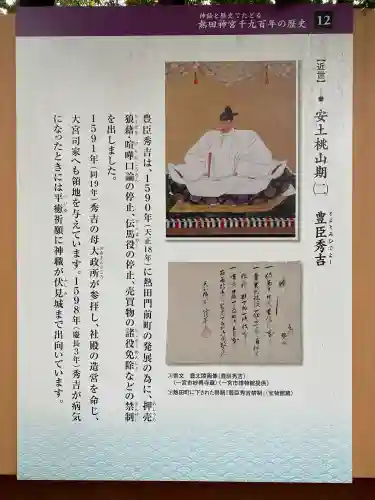 神話と歴史でたどる
熱田神宮千九百年の歴史
12
【近世】
安土桃山期(二)
豊臣秀吉
とよとみひでよし
豊臣秀吉は、1590年(天正18年)に熱田門前町の発展の為に、押売
狼藉、喧嘩口論の停止、伝馬役の停止、売買物の諸役免除などの禁制
を出しました。
1591年(同19年)秀吉の母大政所が参拝し、社殿の造営を命じ、
大宮司家へも領地を与えています。1598年(慶長3年)秀吉が病気
になったときには平癒祈願に神職が伏見城まで出向いています。
(一宮市妙興寺蔵)(一宮市博物館提供)